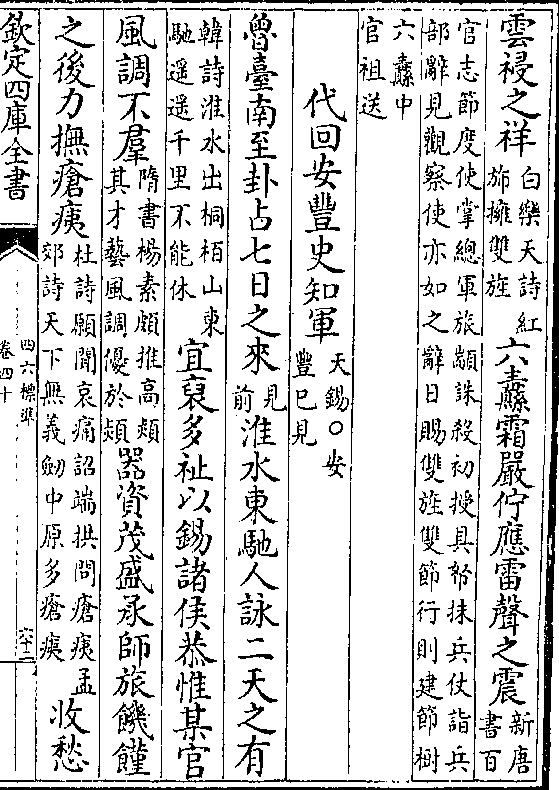 雲祲之祥白樂天詩紅旆擁雙旌六纛霜嚴佇應雷聲之震新唐書百
官志節度使掌總軍旅顓誅殺初授具帑抹兵仗詣兵
部辭見觀察使亦如之辭日賜雙旌雙節行則建節樹
六纛中
官祖送
代回安豐史知軍天錫○安豐已見
魯臺南至卦占七日之來見前淮水東馳人詠二天之有
韓詩淮水出桐栢山東馳遥遥千里不能休宜裒多祉以錫諸侯恭惟某官
風調不羣隋書楊素頗推高熲其才藝風調優於熲器資茂盛承師旅饑饉
之後力撫瘡痍杜詩願聞哀痛詔端拱問瘡痍孟郊詩天下無義劒中原多瘡痍收愁
欽定四庫全書
四六標準
卷四十
六十二